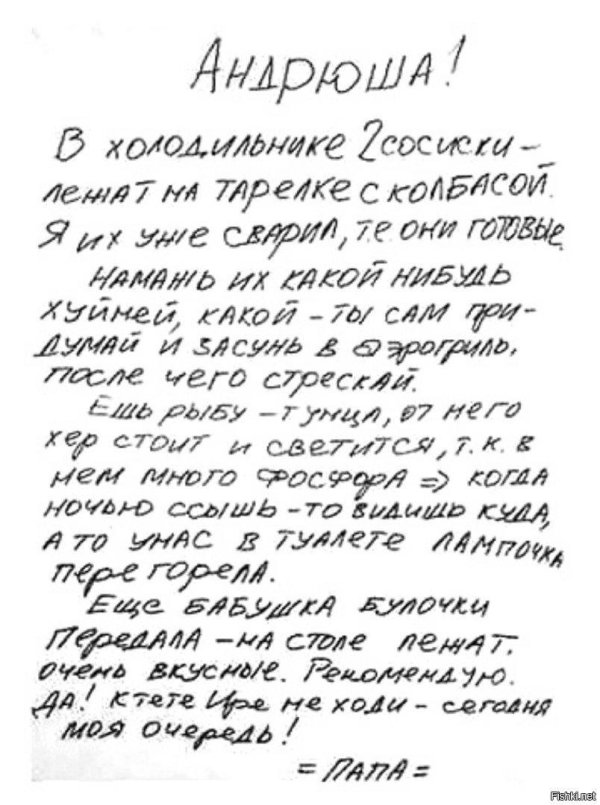 Андрюша!
В холодильнике 2 сосиски –
лежат на тарелке с колбасой.
Я их уже сварил, т.е они готовые.
Намажь их какой нибудь
хуйней, какой – ты сам при-
думай и засунь в аэрогриль.
после чего стрескай.
Ешь рыбу – тунца, от него
хер стоит и светится, т.к. в
нем много фосфора => когда
ночью ссышь – то видишь куда,
а то у нас в туалете лампочка
перегорела.
Еще бабушка булочки
передала – на столе лежат.
очень вкусные. Рекомендую.
Да! К тете Ире не ходи – сегодня
моя очередь!
= Папа =
Fishki.net